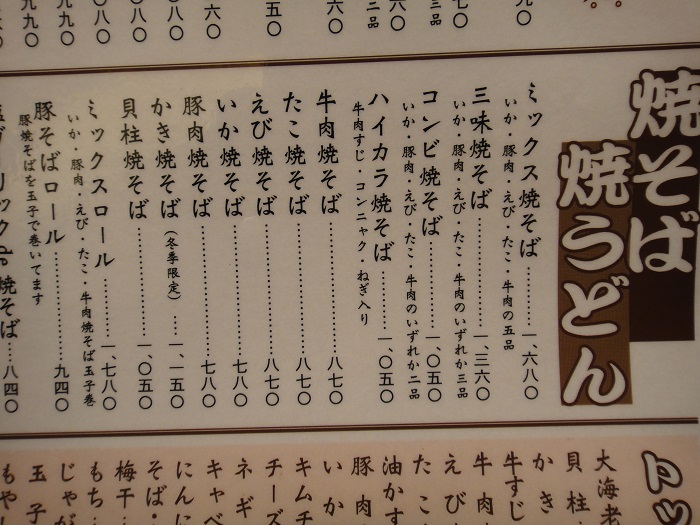 焼そば
焼うどん
ミックス焼そば………一、六八〇
いか・豚肉・えび・たこ・牛肉の五品
三味焼そば………一、三六〇
いか・豚肉・えび・たこ・牛肉のいずれか三品
コンビ焼そば………一、〇五〇
いか・豚肉・えび・たこ・牛肉のいずれか二品
ハイカラ焼そば………一、〇五〇
牛肉すじ・コンニャク・ねぎ入り
牛肉焼そば………八七〇
たこ焼そば………八七〇
えび焼そば………八七〇
いか焼そば………七八〇
豚肉焼そば………七八〇
かき焼そば(冬季限定)…一、一五〇
貝柱焼そば………一、〇五〇
ミックスロール………一、七八〇
いか・豚肉・えび・たこ・牛肉焼そば玉子巻
豚そばロール………九四〇
豚焼そばを玉子で巻いてます
焼そば…八四〇
トッ
大海老
貝柱
かき
牛すじ
牛肉
えび
たこ
油かす
豚肉
いか
キムチ
チーズ
ネギ
キャベ
にんに
そば・
梅干
もち
じゃが
玉子
もやし